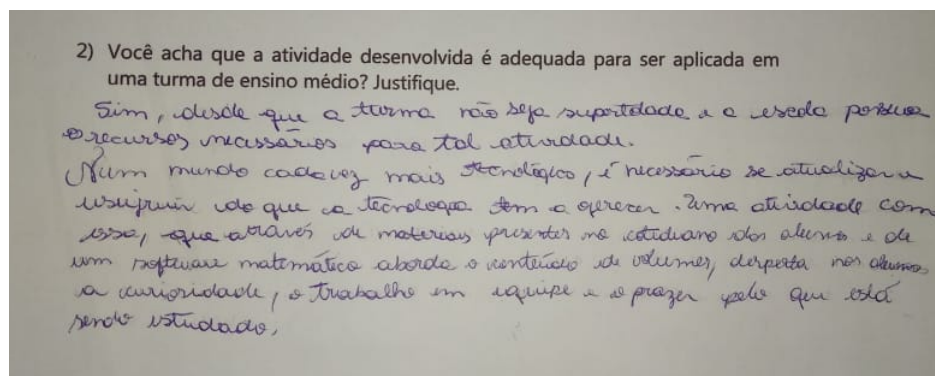 2) Você acha que a atividade desenvolvida é adequada para ser aplicada em
uma turma de ensino médio? Justifique.
Sim, desde que a turma não seja superlotada e a escola possua
recursos necessários para tal atividade.
Num mundo cada vez mais tecnológico, é necessário se atualizar e
usufruir do que a tecnologia tem a oferecer. Uma atividade com
essa, que através de materiais presentes no cotidiano dos alunos e de
um software matemático aborda o conteúdo de volumes, desperta nos alunos
a curiosidade, o trabalho em equipe e o prazer pelo que está
sendo estudado.